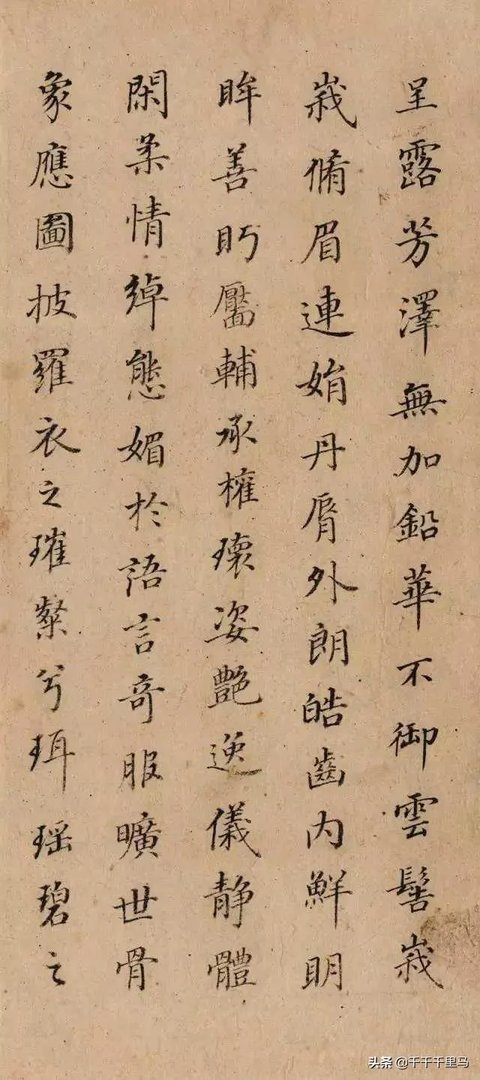 呈露芳澤無加鉛華不御雲髻峩
峩脩眉連娟丹脣外朗皓齒内鮮明
眸善眄靨輔承權瓌姿艷逸儀静體
閑柔情綽態媚於語言奇服曠世骨
象應圖披羅衣之璀粲兮珥瑶碧之
头条 @千千千里马